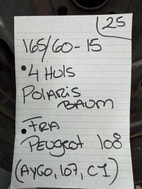 25
165/60-15
• 4 HULS
POLARIS
BAUM
• FRA
PEUGEOT 108
(AYGO, 107, C1)